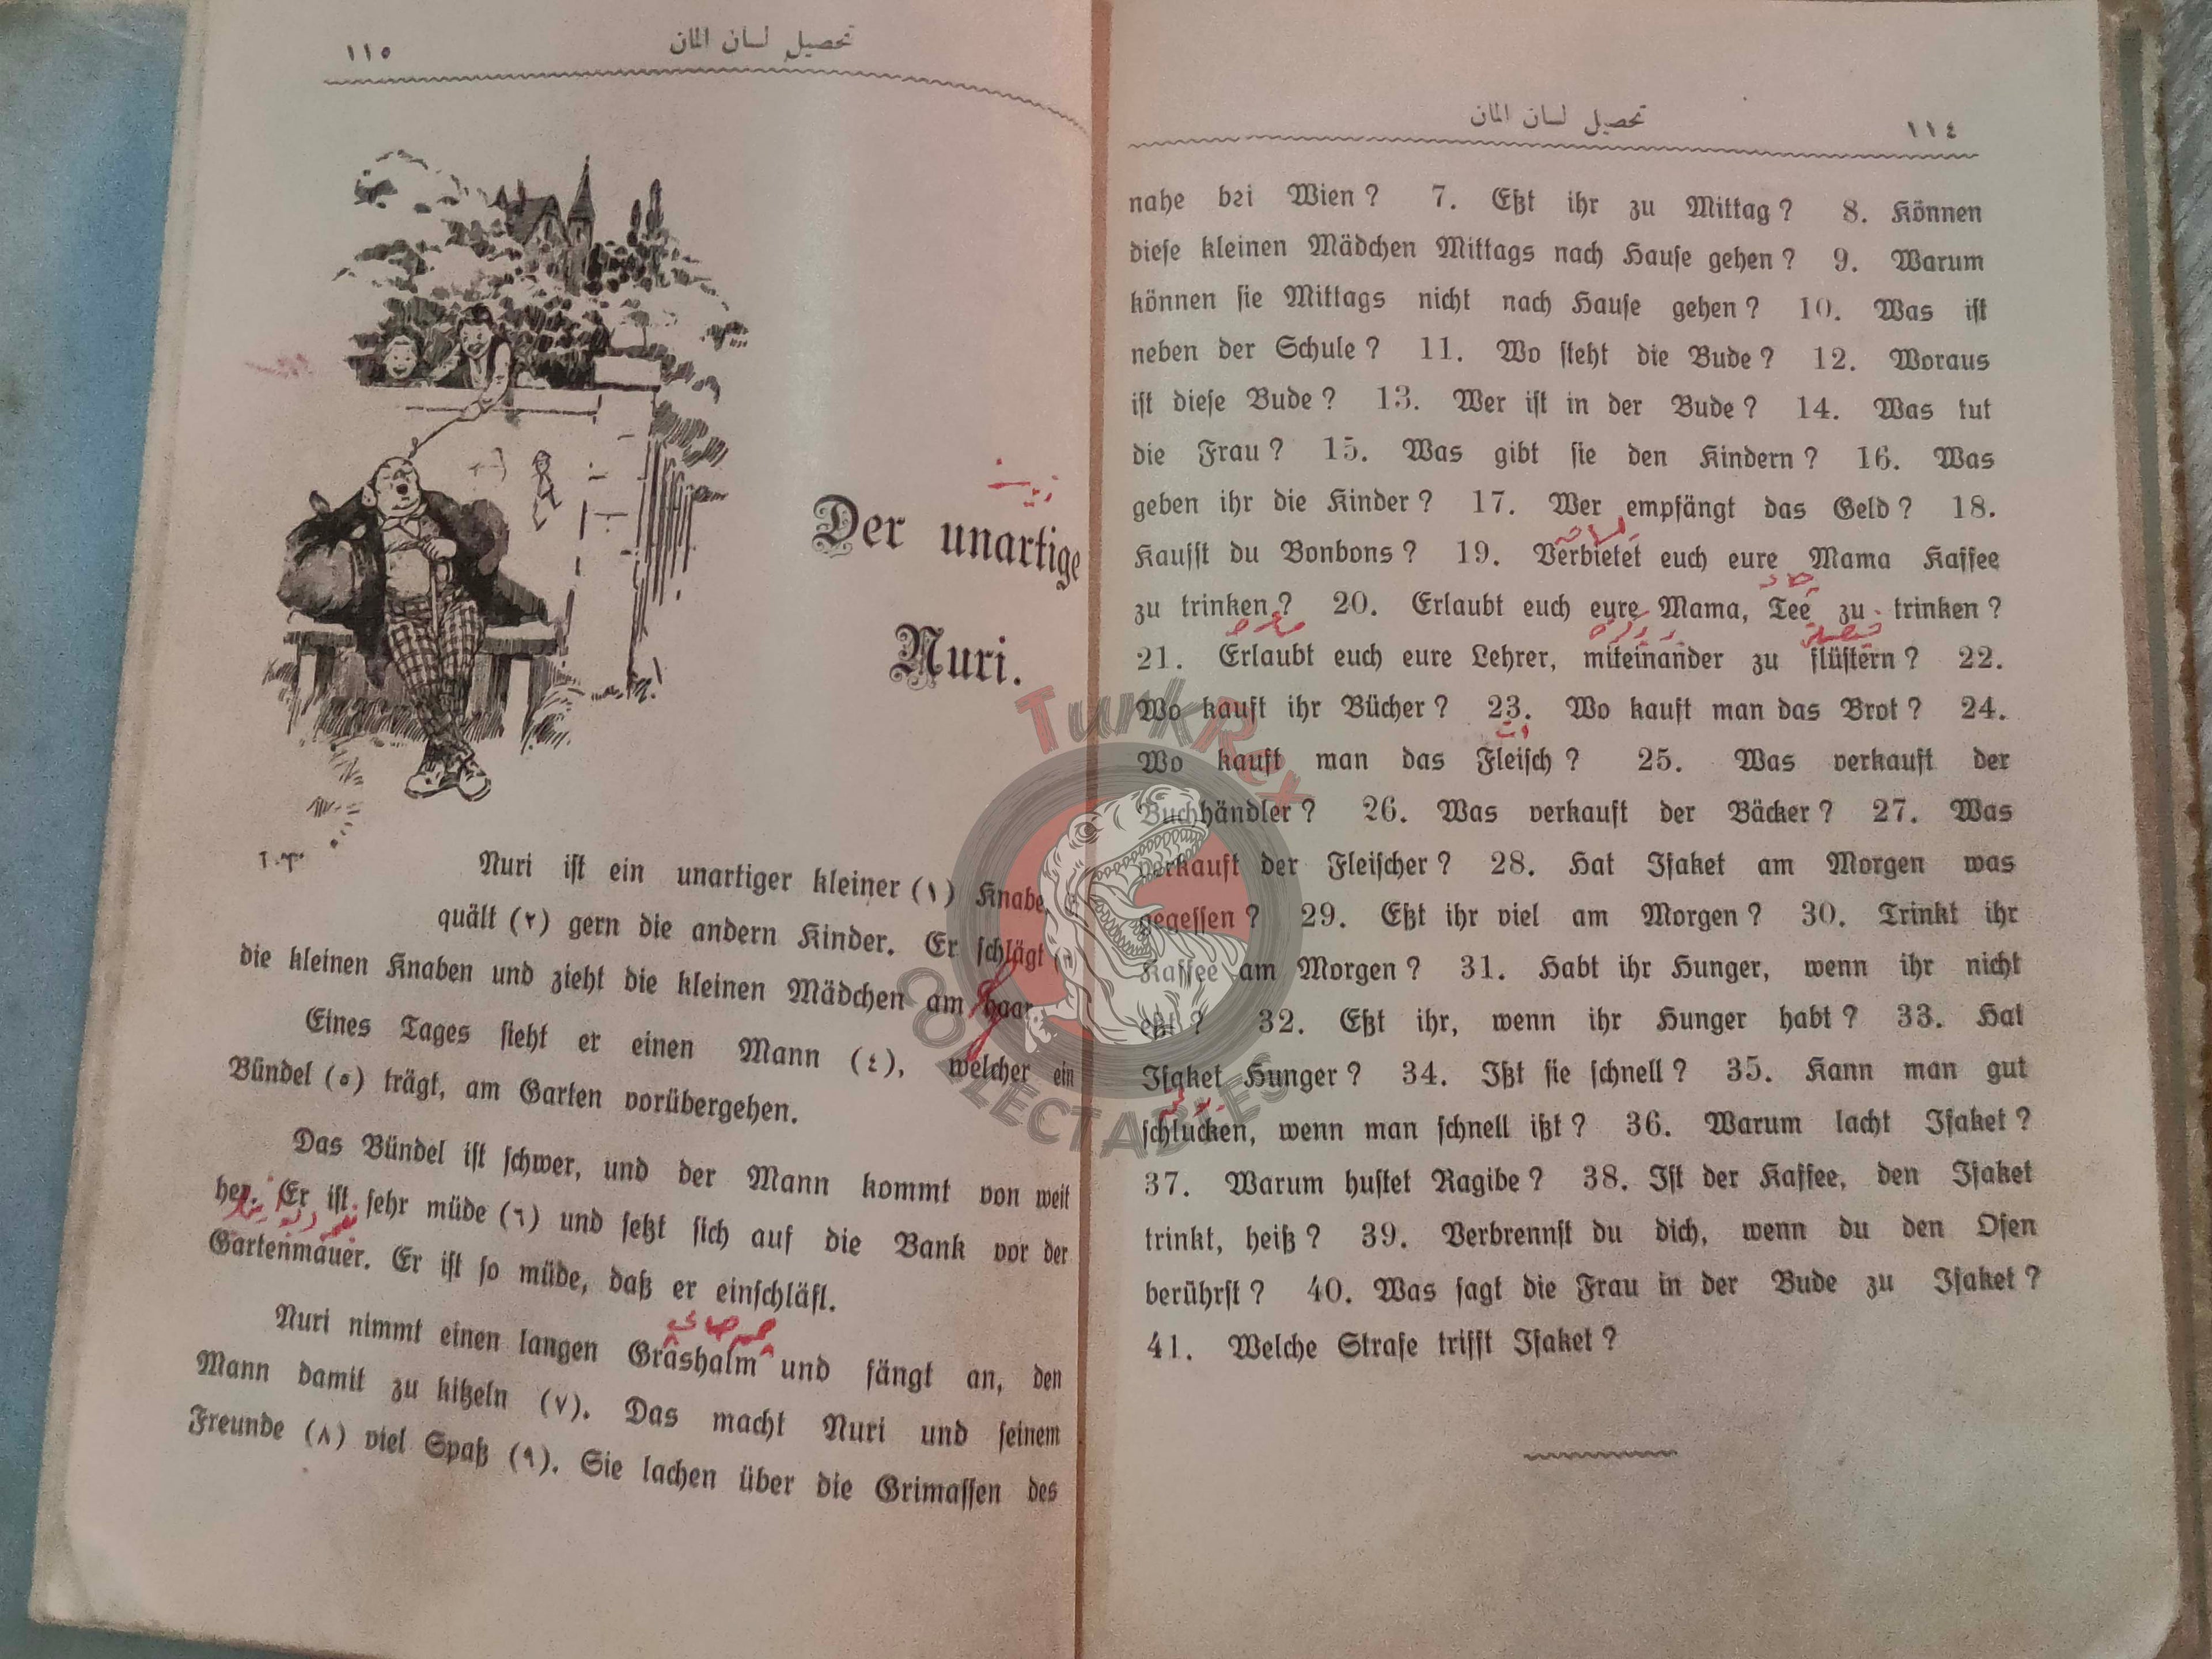 تحصيل لسان المان
١١٤
nahe bei Wien ? 7. Eßt ihr zu Mittag ? 8. Können
diese kleinen Mädchen Mittags nach Hause gehen ? 9. Warum
können sie Mittags nicht nach Hause gehen ? 10. Was ist
neben der Schule ? 11. Wo steht die Bude ? 12. Woraus
ist diese Bude ? 13. Wer ist in der Bude ? 14. Was tut
die Frau ? 15. Was gibt sie den Kindern ? 16. Was
geben ihr die Kinder ? 17. Wer empfängt das Geld ? 18.
Kaufst du Bonbons ? 19. Verbietet euch eure Mama Kaffee
zu trinken ? 20. Erlaubt euch eure Mama, Tee zu trinken ?
21. Erlaubt euch eure Lehrer, miteinander zu flüstern ? 22.
Wo kauft ihr Bücher ? 23. Wo kauft man das Brot ? 24.
Wo kauft man das Fleisch ? 25. Was verkauft der
Buchhändler ? 26. Was verkauft der Bäcker ? 27. Was
verkauft der Fleischer ? 28. Hat Isaket am Morgen was
gegessen ? 29. Eßt ihr viel am Morgen ? 30. Trinkt ihr
Kaffee am Morgen ? 31. Habt ihr Hunger, wenn ihr nicht
eßt ? 32. Eßt ihr, wenn ihr Hunger habt ? 33. Hat
Isaket Hunger ? 34. Ißt sie schnell ? 35. Kann man gut
schlucken, wenn man schnell ißt ? 36. Warum lacht Isaket ?
37. Warum hustet Ragibe ? 38. Ist der Kaffee, den Isaket
trinkt, heiß ? 39. Verbrennst du dich, wenn du den Ofen
berührst ? 40. Was sagt die Frau in der Bude zu Isaket ?
41. Welche Strafe trifft Isaket ?
تحصيل لسان المان
١١٥
Der unartige
Nuri.
Nuri ist ein unartiger kleiner (١) Knabe,
quält (٢) gern die andern Kinder. Er schlägt
die kleinen Knaben und zieht die kleinen Mädchen am haar.
Eines Tages sieht er einen Mann (٤), welcher ein
Bündel (٥) trägt, am Garten vorübergehen.
Das Bündel ist schwer, und der Mann kommt von weit
her. Er ist sehr müde (٦) und setzt sich auf die Bank vor der
Gartenmauer. Er ist so müde, daß er einschläft.
Nuri nimmt einen langen Grashalm und fängt an, den
Mann damit zu kitzeln (٧). Das macht Nuri und seinem
Freunde (٨) viel Spaß (٩). Sie lachen über die Grimassen des
TurkRex
COLLECTABLES